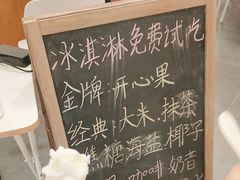 冰淇淋免费试吃
金牌:开心果
经典:大米.抹茶
焦糖海盐.椰子
咖啡.奶昔